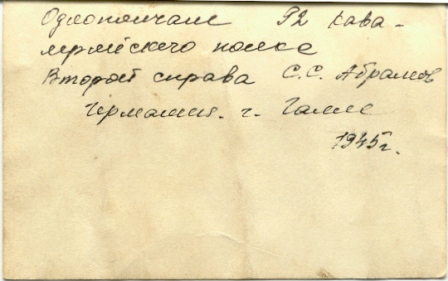 Однополчане 92 кава-
лерийского полка
Второй справа С.С. Абрамов
Германия. г. Галле
1945г.